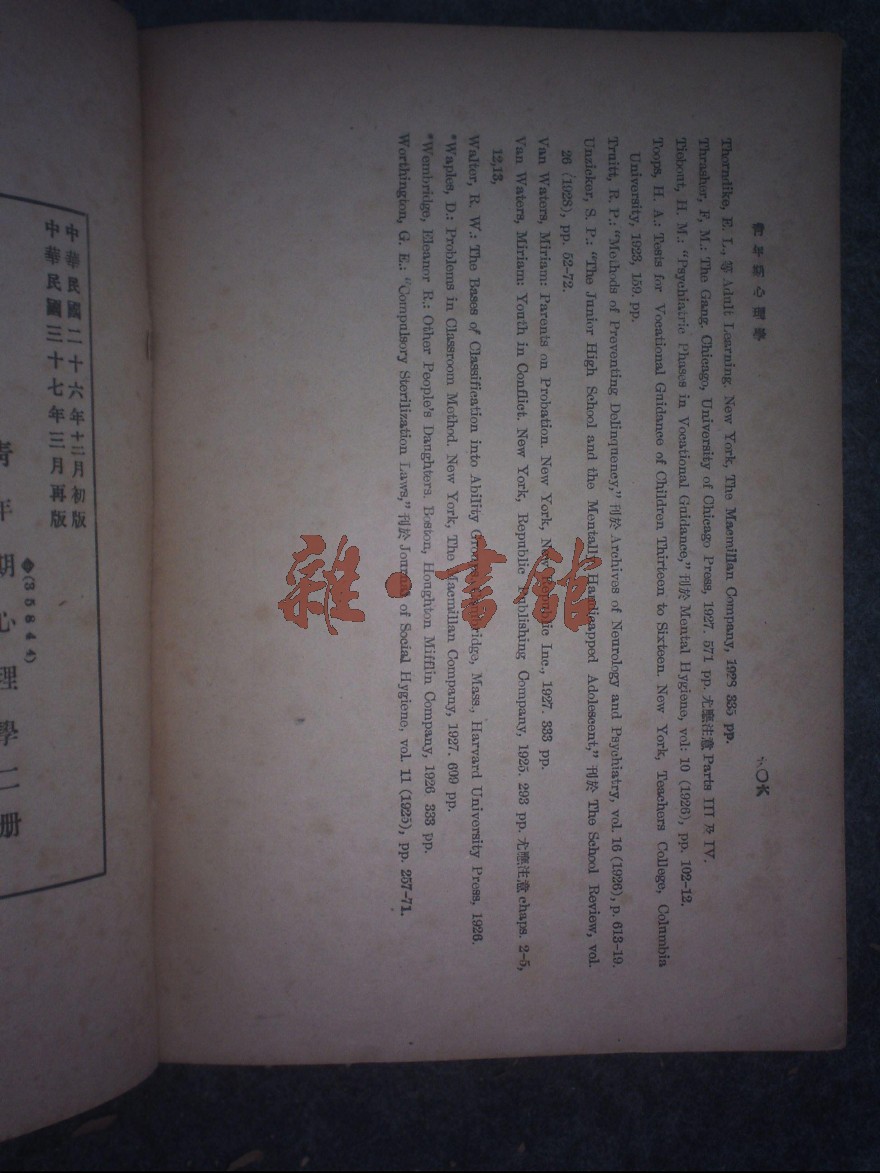 青年期心理學
Thorndike, E. L., 等 Adult Learning. New York, The Macmillan Company, 1928 335 pp.
Thrasher, F. M.: The Gang. Chicago, University of Chicago Press, 1927. 571 pp. 尤應注意 Parts III 及 IV.
Tiebout, H. M.: “Psychiatric Phases in Vocational Guidance,” 刊於 Mental Hygiene, vol. 10 (1926), pp. 102-12.
Toops, H. A.: Tests for Vocational Guidance of Children Thirteen to Sixteen. New York, Teachers College, Columbia
University, 1923, 159. pp.
Truitt, R. P.: “Methods of Preventing Delinquency,” 刊於 Archives of Neurology and Psychiatry, vol. 16 (1926), p. 613-19.
Unzicker, S. P.: “The Junior High School and the Mentally Handicapped Adolescent,” 刊於 The School Review, vol.
26 (1928), pp. 52-72.
Van Waters, Miriam: Parents on Probation. New York, New Republic Inc., 1927. 333 pp.
Van Waters, Miriam: Youth in Conflict. New York, Republic Publishing Company, 1925. 293 pp. 尤應注意 chaps. 2-5,
12,13,
Walter, R. W.: The Bases of Classification into Ability Groups. Cambridge, Mass., Harvard University Press, 1926.
*Waples, D.: Problems in Classroom Method. New York, The Macmillan Company, 1927. 609 pp.
*Wembridge, Eleanor R.: Other People's Daughters. Boston, Houghton Mifflin Company, 1926 333 pp.
Worthington, G. E.: “Compulsory Sterilization Laws,” 刊於 Journal of Social Hygiene, vol. 11 (1925), pp. 257-71.
雜·書館
中華民國二十六年十二月初版
中華民國三十七年三月再版
◆(35844)
青年期心理學二册